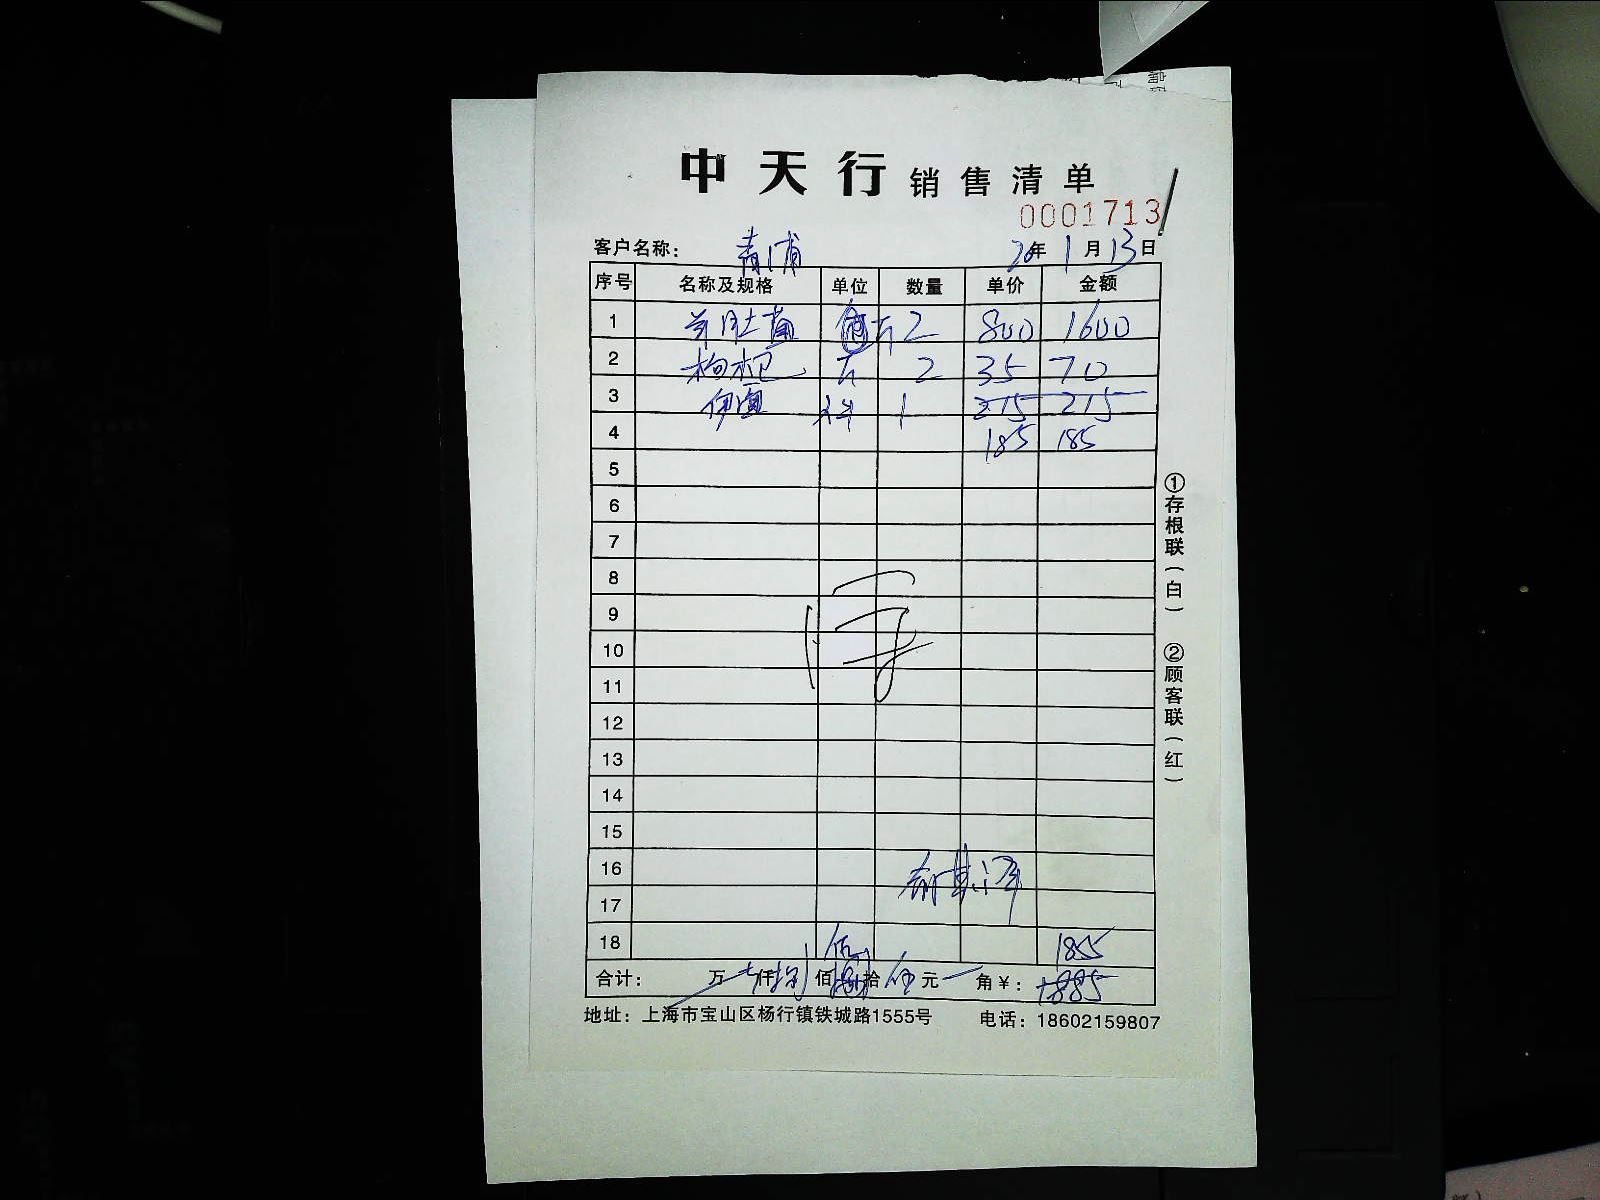 中天行 销售清单
0001713
客户名称: 青浦 20年 1月 13日
序号 名称及规格 单位 数量 单价 金额
1 羊肚菌 斤 2 800 1600
2 枸杞 斤 2 35 70
3 伊面 件 1 215 215
4 185 185
5
6
7
8
9
10
11
12
13
14
15
16
17
18 1855
合计: 万 壹仟捌佰 拾伍元 角¥: 1885
地址: 上海市宝山区杨行镇铁城路1555号 电话: 18602159807
①存根联(白) ②顾客联(红)